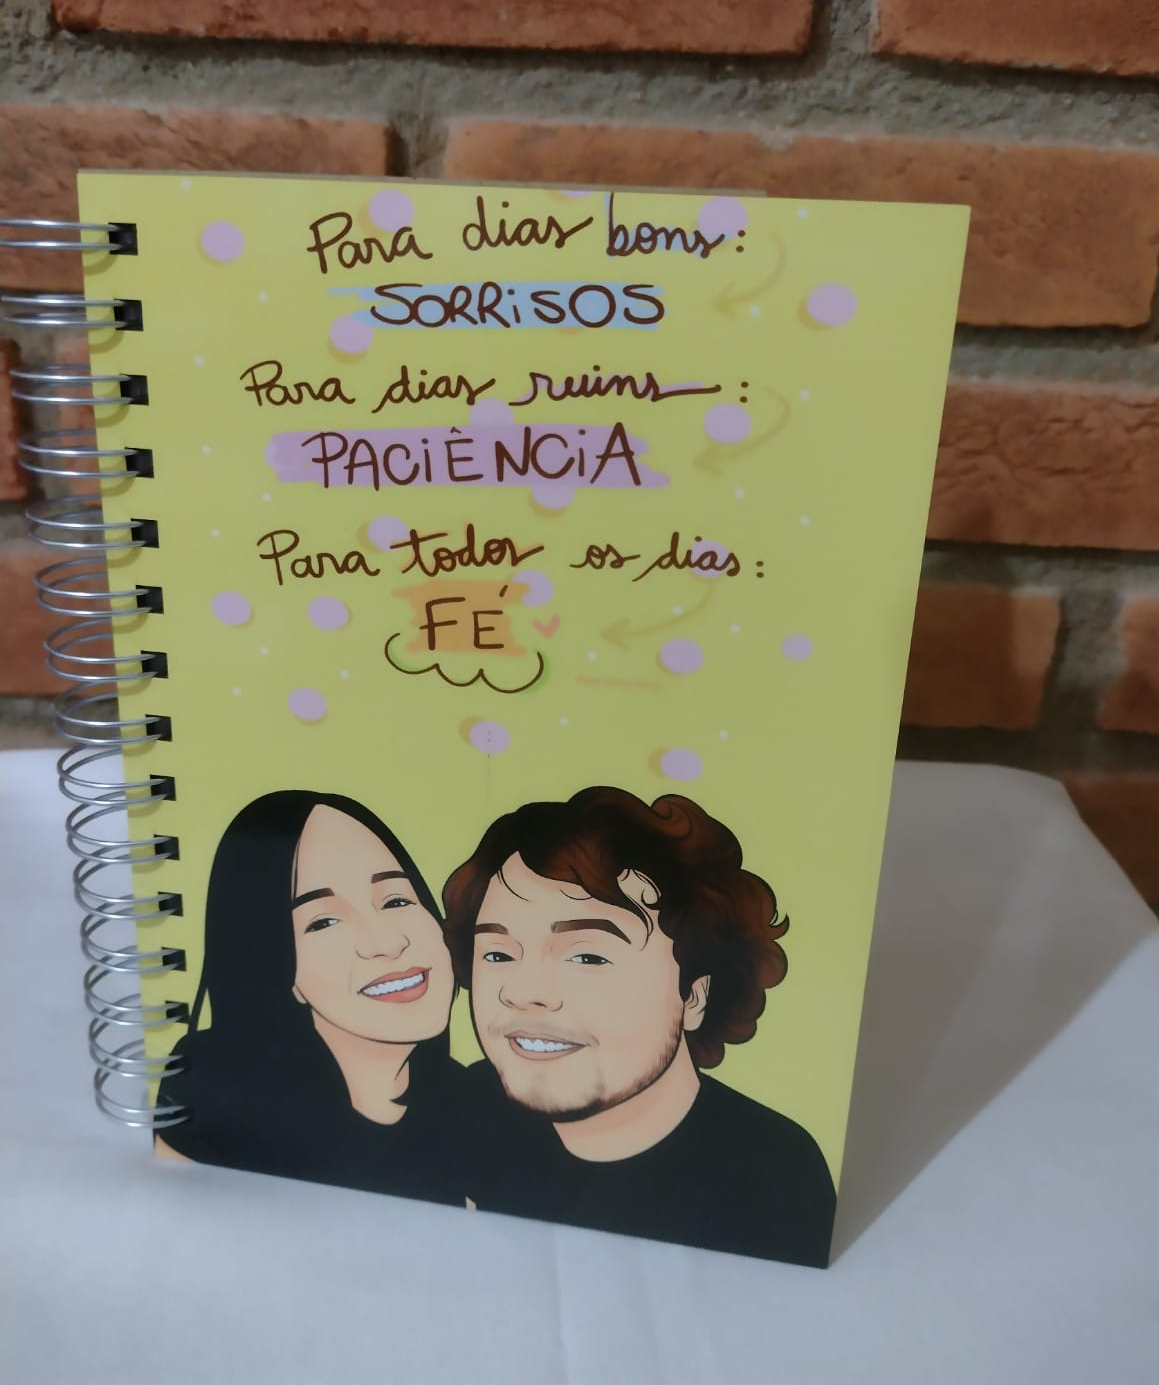 Para dias bons:
SORRiSOS
Para dias ruins:
PACiÊNCiA
Para todos os dias:
FÉ